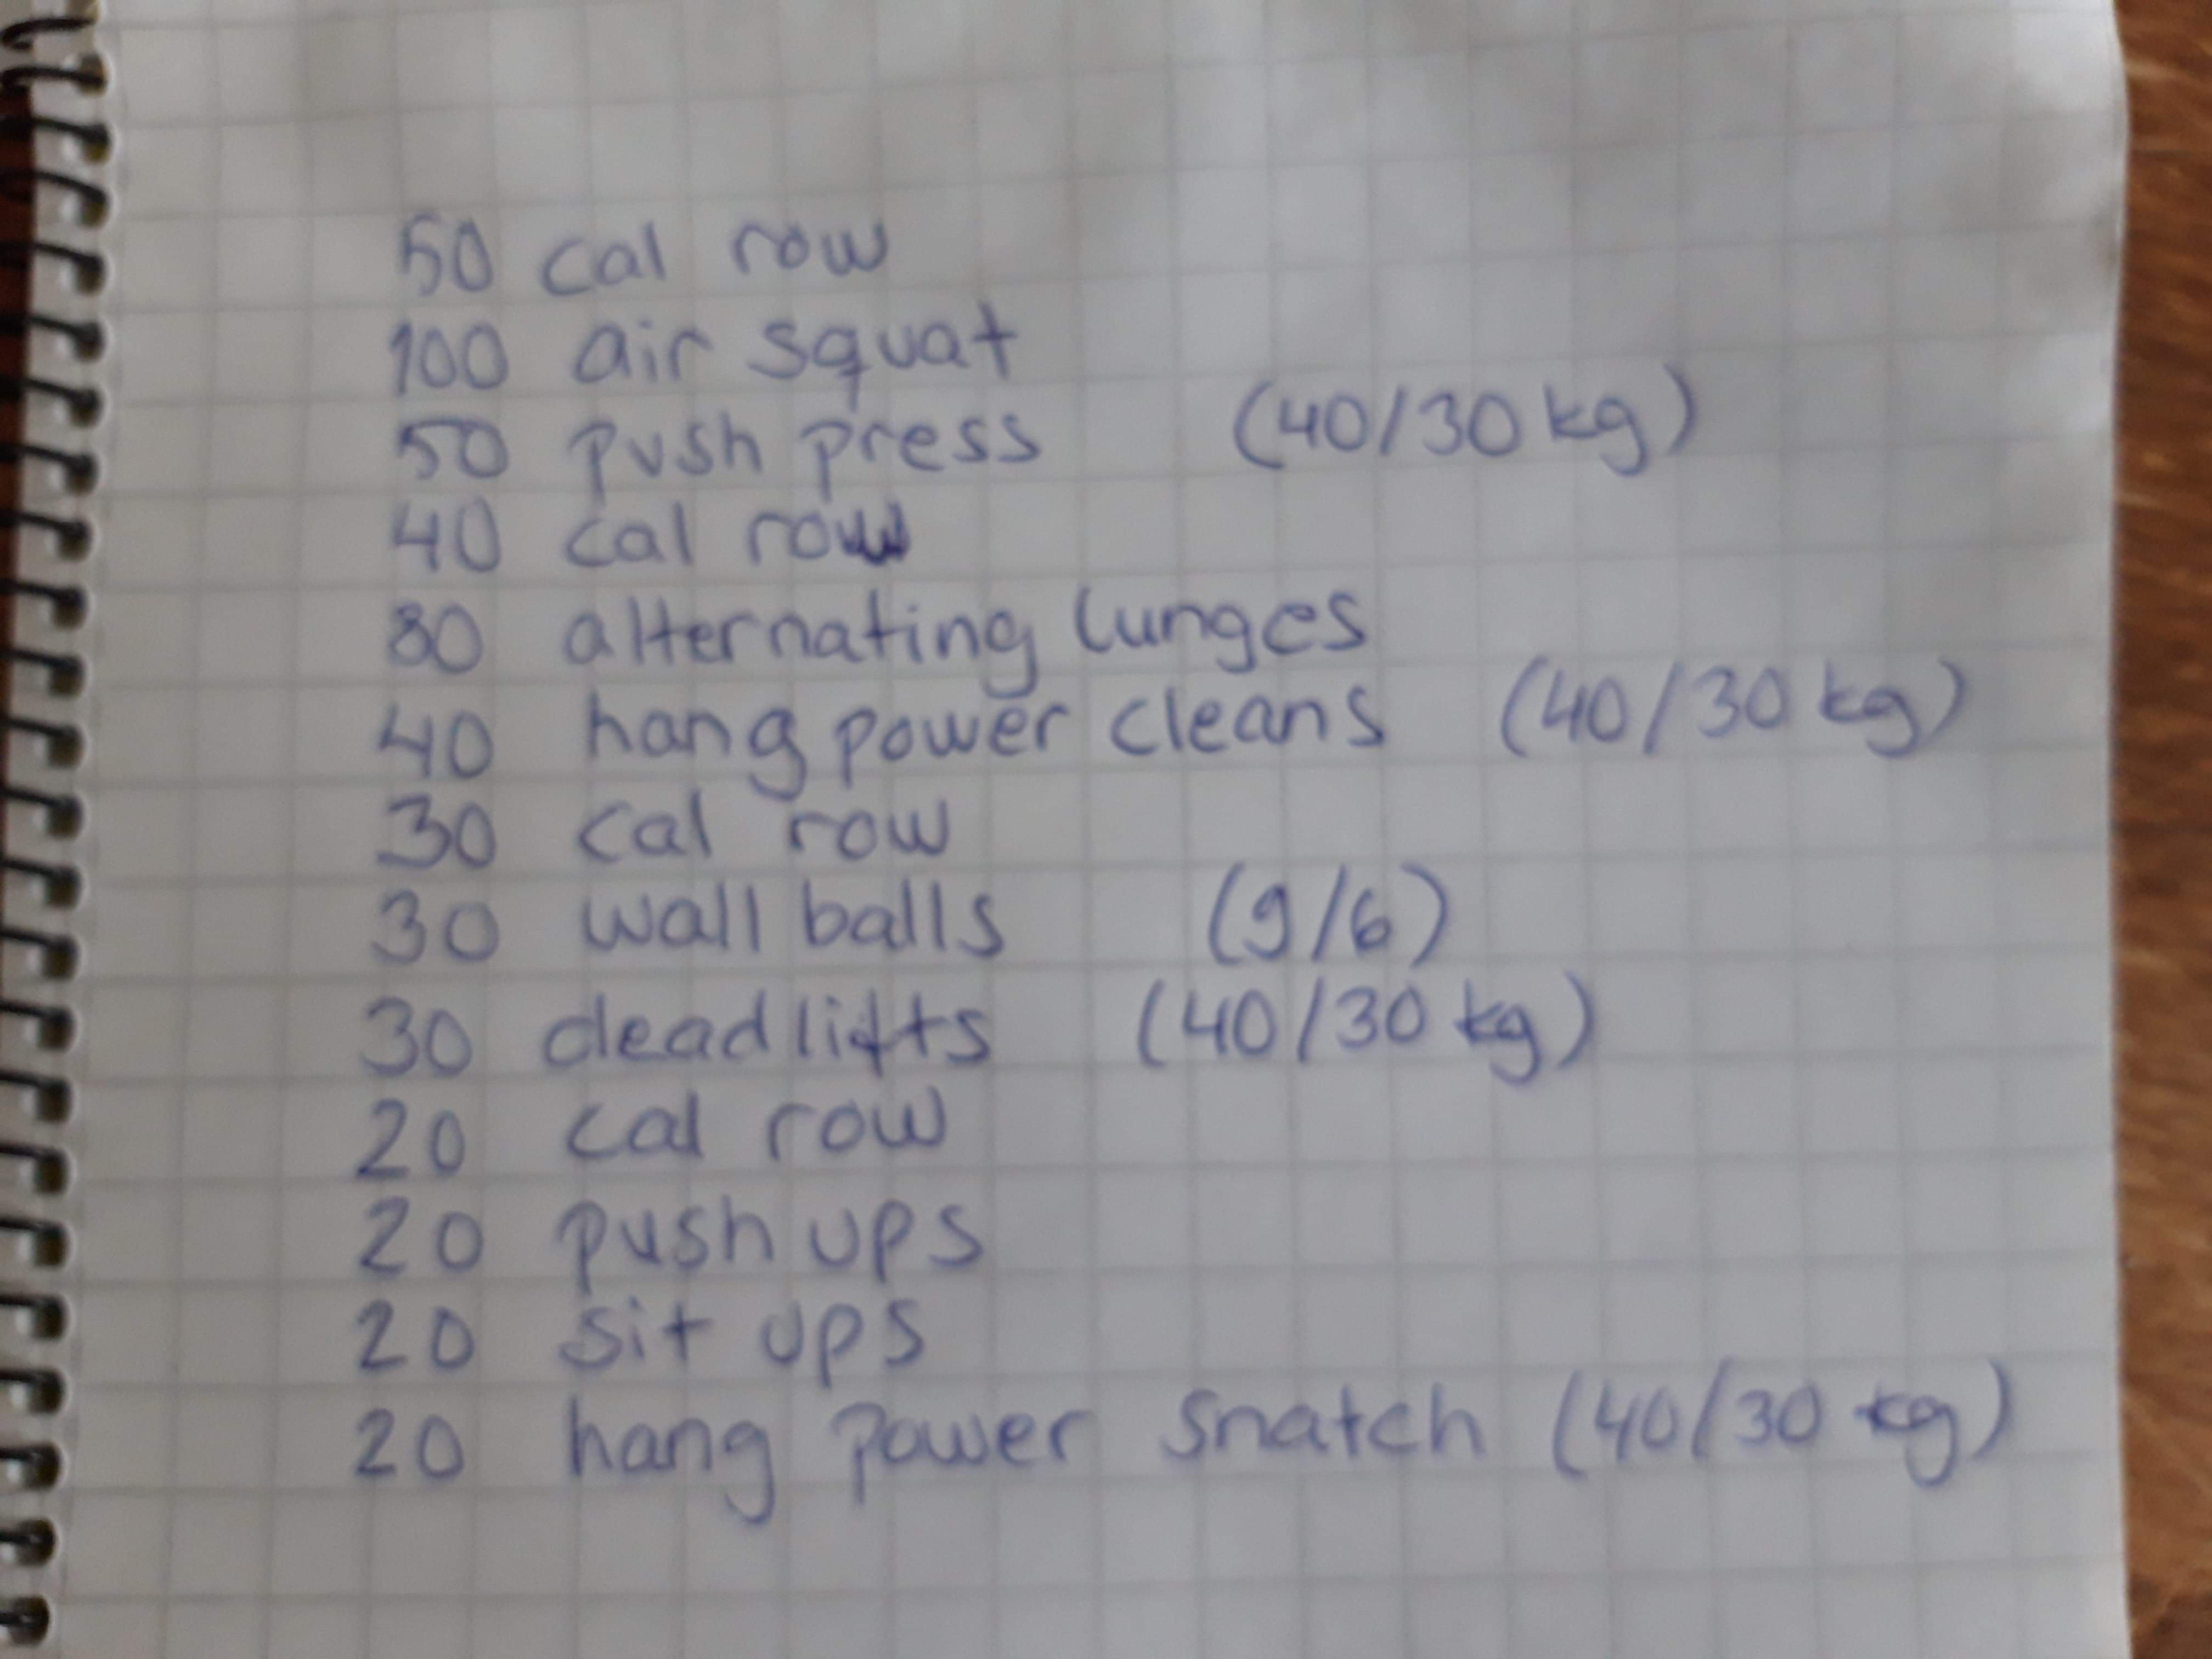 50 cal row
100 air squat
50 push press (40/30 kg)
40 cal row
80 alternating lunges
40 hang power cleans (40/30 kg)
30 cal row
30 wall balls (9/6)
30 deadlifts (40/30 kg)
20 cal row
20 push ups
20 sit ups
20 hang power snatch (40/30 kg)